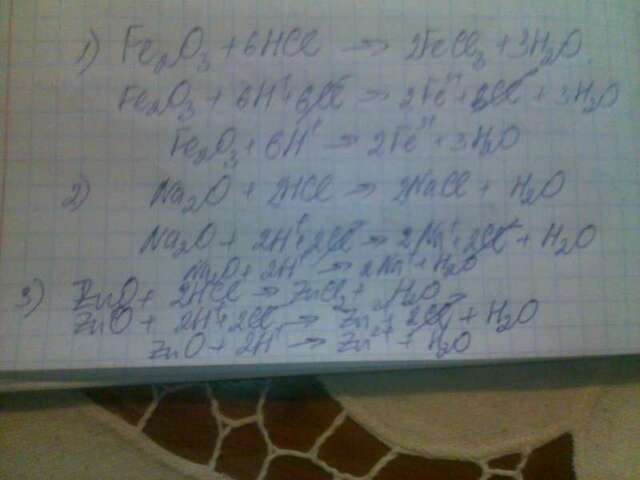 1) Fe₂O₃ + 6HCl → 2FeCl₃ + 3H₂O
Fe₂O₃ + 6H⁺ + 6Cl⁻ → 2Fe³⁺ + 6Cl⁻ + 3H₂O
Fe₂O₃ + 6H⁺ → 2Fe³⁺ + 3H₂O
2) Na₂O + 2HCl → 2NaCl + H₂O
Na₂O + 2H⁺ + 2Cl⁻ → 2Na⁺ + 2Cl⁻ + H₂O
Na₂O + 2H⁺ → 2Na⁺ + H₂O
3) ZnO + 2HCl → ZnCl₂ + H₂O
ZnO + 2H⁺ + 2Cl⁻ → Zn²⁺ + 2Cl⁻ + H₂O
ZnO + 2H⁺ → Zn²⁺ + H₂O